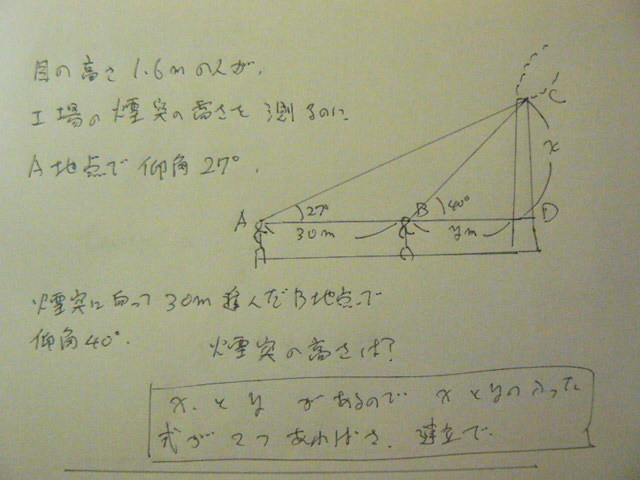 目の高さ 1.6mの人が、
工場の煙突の高さを測るのに
A地点で仰角27°.
C
x
A 27° B 40° D
30m ym
煙突に向って30m進んだB地点で
仰角40°.
煙突の高さは?
x. とy があるので xとyの入った
式が2つあればさ. 連立で.